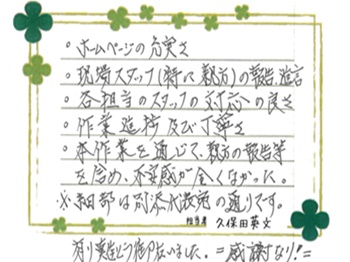 。ホームページの充実さ
。現場スタッフ(特に親方)の報告進言
。各担当のスタッフの対応の良さ
。作業進捗及び丁寧さ
。本作業を通じて、親方の報告等
を含め、不安感が全くなかった。
※細部は別添代表宛の通りです。
担当者 久保田英文
有り難とう御座いました。=感謝なり!=